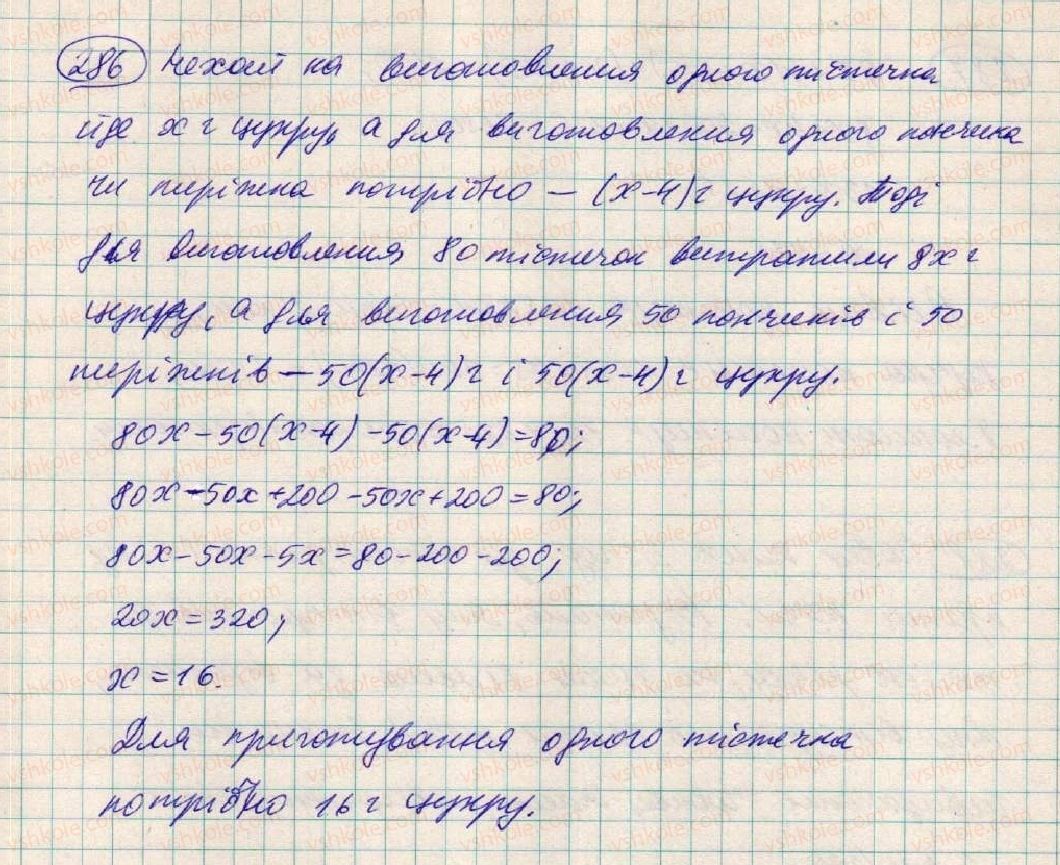 286 Нехай на виготовлення одного тістечка
йде х г цукру, а для виготовлення одного пончика
чи пиріжка потрібно — (х-4) г цукру. Тоді
для виготовлення 80 тістечок витратили 8х г
цукру, а для виготовлення 50 пончиків і 50
пиріжків — 50(х-4) г і 50(х-4) г цукру.
80х - 50(х-4) - 50(х-4) = 80;
80х - 50х + 200 - 50х + 200 = 80;
80х - 50х - 5х = 80 - 200 - 200;
20х = 320;
х = 16.
Для приготування одного тістечка
потрібно 16 г цукру.